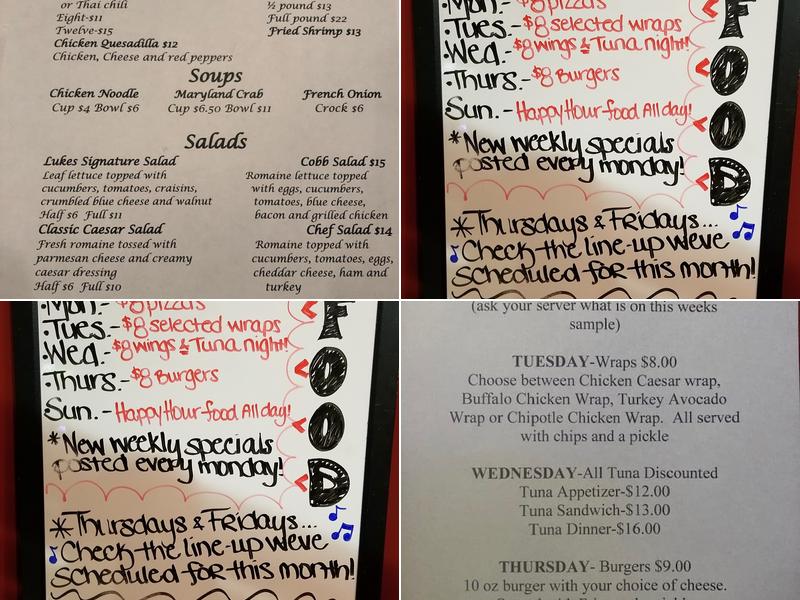 or Thai chili
Eight-$11
Twelve-$15
Chicken Quesadilla $12
Chicken, Cheese and red peppers
½ pound $13
Full pound $22
Fried Shrimp $13
Soups
Chicken Noodle
Cup $4 Bowl $6
Maryland Crab
Cup $6.50 Bowl $11
French Onion
Crock $6
Salads
Lukes Signature Salad
Leaf lettuce topped with
cucumbers, tomatoes, craisins,
crumbled blue cheese and walnut
Half $6 Full $11
Classic Caesar Salad
Fresh romaine tossed with
parmesan cheese and creamy
caesar dressing
Half $6 Full $10
Cobb Salad $15
Romaine lettuce topped
with eggs, cucumbers,
tomatoes, blue cheese,
bacon and grilled chicken
Chef Salad $14
Romaine topped with
cucumbers, tomatoes, eggs,
cheddar cheese, ham and
turkey
•Mon.- $8 pizzas
•Tues.- $8 selected wraps
•Wed.- $8 wings & Tuna night!
•Thurs.- $8 Burgers
Sun.- Happy Hour food All day!
*New weekly specials
posted every monday!
FOOD
*Thursdays & Fridays...
Check the line-up weve
scheduled for this month!
•Mon.- $8 pizzas
•Tues.- $8 selected wraps
•Wed.- $8 wings & Tuna night!
•Thurs.- $8 Burgers
Sun.- Happy Hour food All day!
*New weekly specials
posted every monday!
FOOD
*Thursdays & Fridays...
Check the line-up weve
scheduled for this month!
(ask your server what is on this weeks
sample)
TUESDAY-Wraps $8.00
Choose between Chicken Caesar wrap,
Buffalo Chicken Wrap, Turkey Avocado
Wrap or Chipotle Chicken Wrap. All served
with chips and a pickle
WEDNESDAY-All Tuna Discounted
Tuna Appetizer-$12.00
Tuna Sandwich-$13.00
Tuna Dinner-$16.00
THURSDAY- Burgers $9.00
10 oz burger with your choice of cheese.